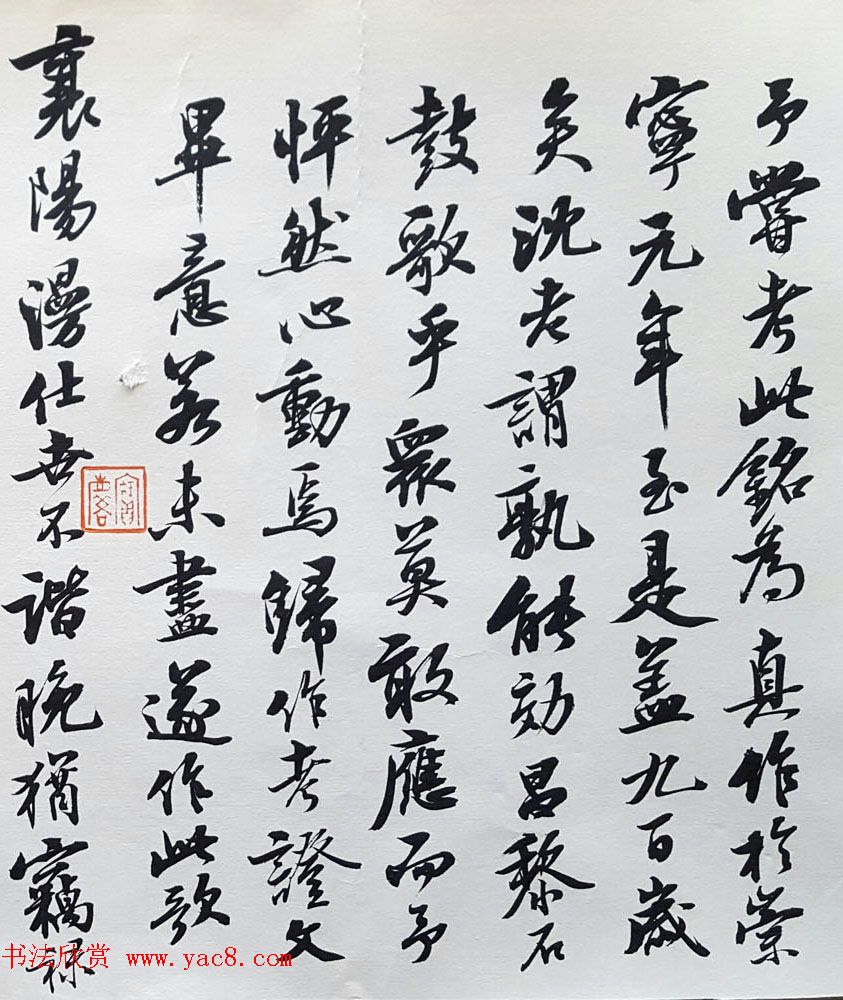 予嘗考此銘為真作於崇
寧元年至是蓋九百歲
矣沈老謂孰能効昌黎石
鼓歌乎眾莫敢應而予
怦然心動焉歸作考證文
畢意若未盡遂作此歌
襄陽漫仕世不諧晚猶竊祿
书法欣赏 www.yac8.com